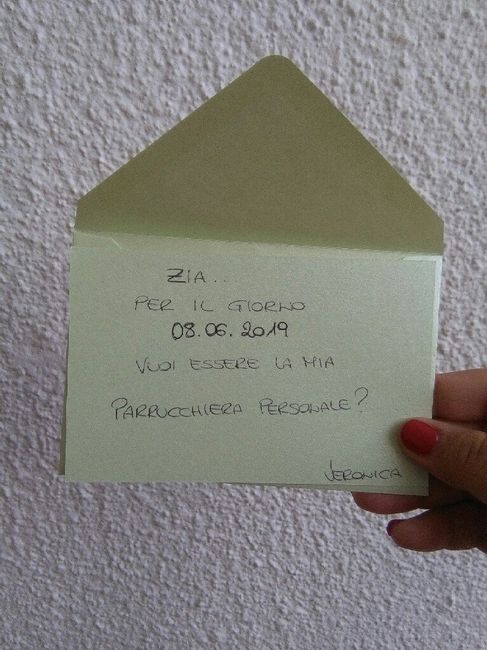 ZIA...
PER IL GIORNO
08.06.2019
VUOI ESSERE LA MIA
PARRUCCHIERA PERSONALE?
VERONICA